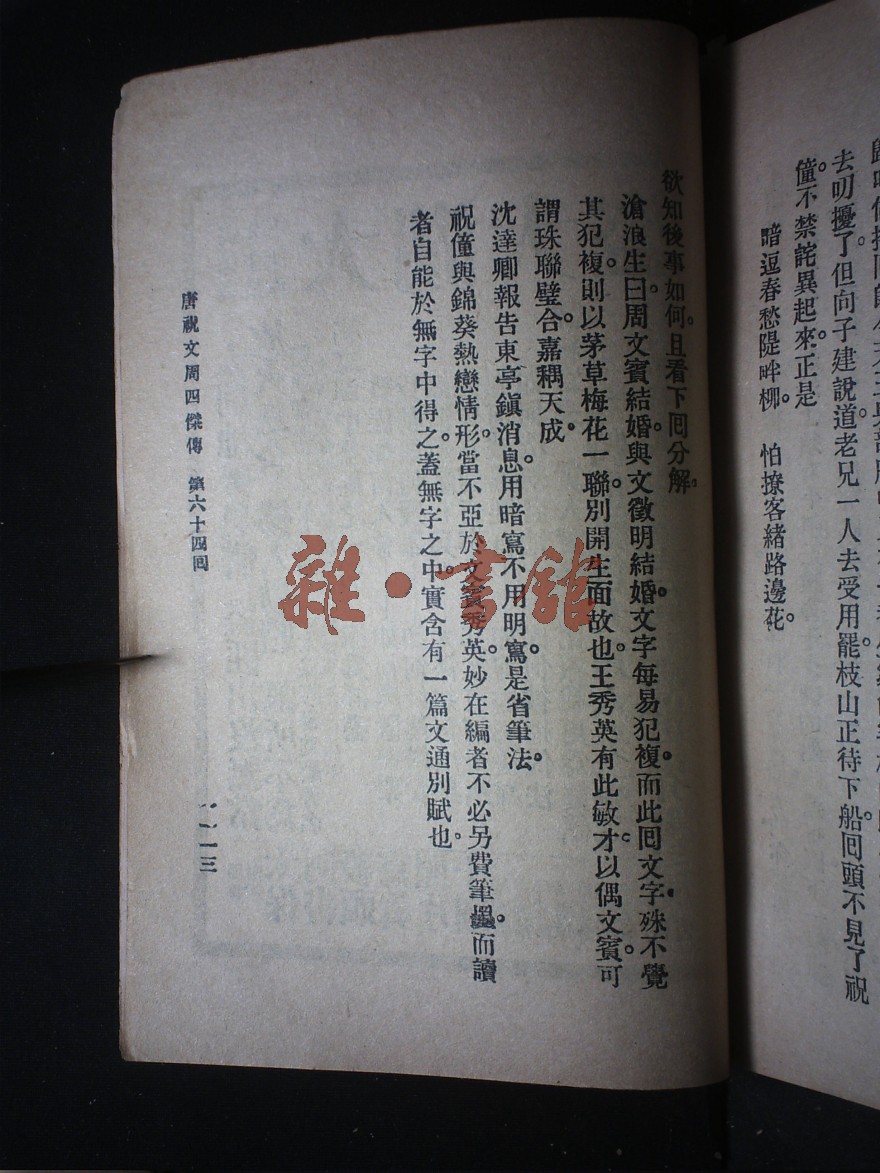 去叨擾了。但向子建說道。老兄一人去受用罷。枝山正待下船。囘頭不見了祝
僮。不禁詫異起來。正是
暗逗春愁隄畔柳。 怕撩客緒路邊花。
欲知後事如何。且看下囘分解。
滄浪生曰。周文賓結婚。與文徵明結婚。文字每易犯複。而此囘文字。殊不覺
其犯複。則以茅草梅花一聯。別開生面故也。王秀英有此敏才。以偶文賓。可
謂珠聯璧合。嘉耦天成。
沈達卿報告東亭鎮消息。用暗寫不用明寫。是省筆法。
祝僮與錦葵熱戀情形。當不亞於文賓秀英。妙在編者不必另費筆墨。而讀
者自能於無字中得之。蓋無字之中。實含有一篇文通別賦也。
唐祝文周四傑傳 第六十四囘
一一三
雜·書館